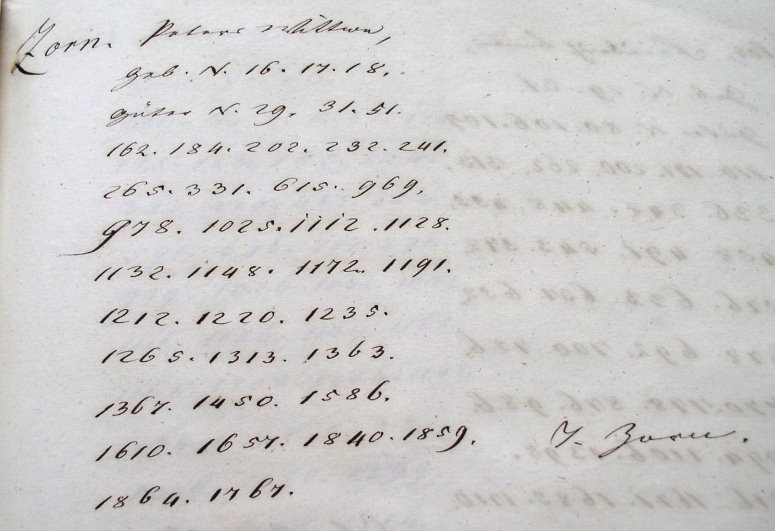 Zorn. Peters Wittwe,
geb. N. 16. 17. 18.
Güter N. 29. 31. 51.
162. 184. 202. 232. 241.
265. 331. 615. 969.
978. 1025. 1112. 1128.
1132. 1148. 1172. 1191.
1212. 1220. 1235.
1265. 1313. 1363.
1367. 1450. 1586.
1610. 1657. 1840. 1859. J. Zorn.
1864. 1767.